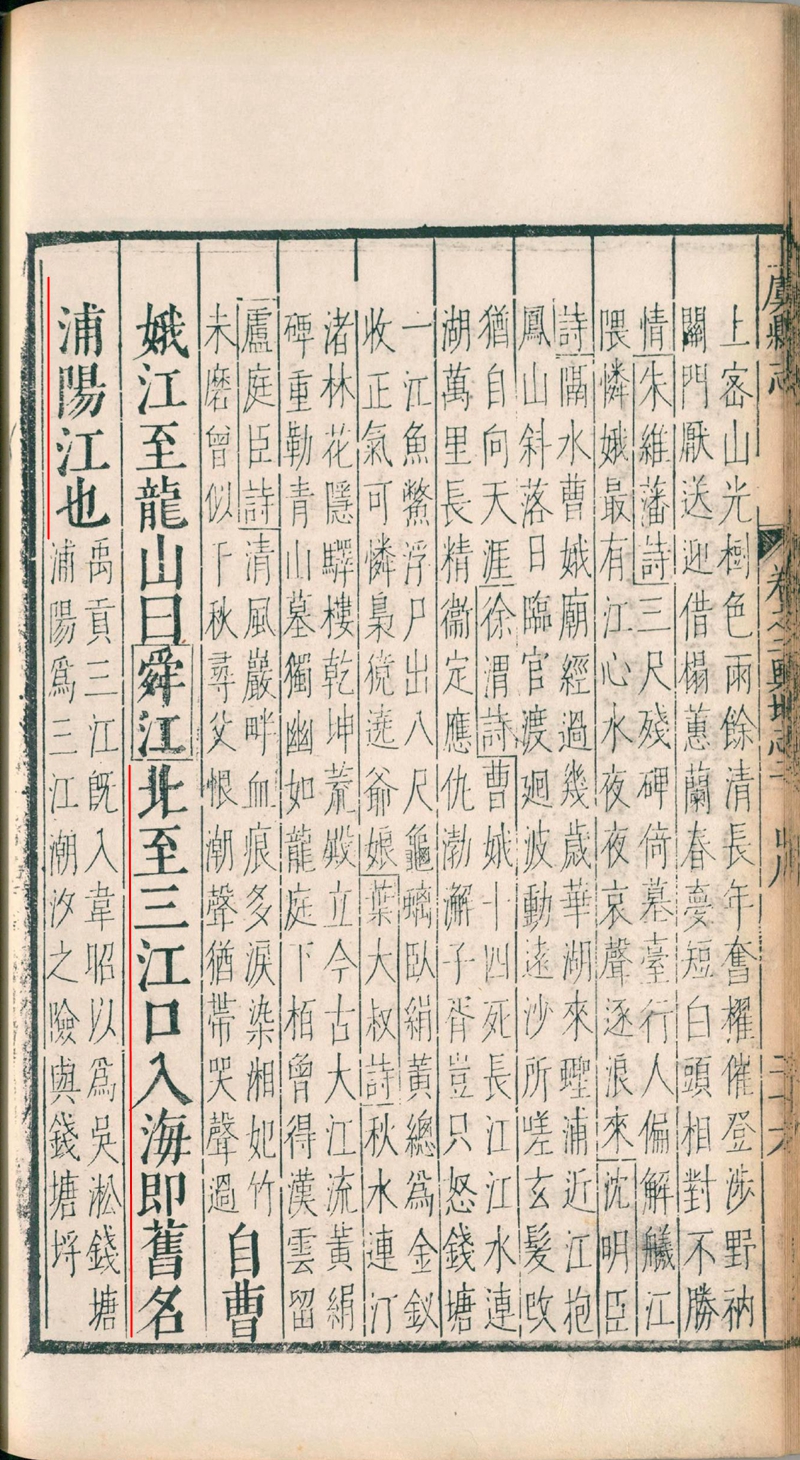 虞縣志　卷之二輿地志二　山川　二十六
上密山光樹色雨餘清長年奮櫂催登涉野衲
關門厭送迎借榻蕙蘭春夢短白頭相對不勝
情朱維藩詩三尺殘碑倚墓臺行人偏解艤江
隈憐娥最有江心水夜夜哀聲逐浪來沈明臣
詩隔水曹娥廟經過幾歲華湖來蟶浦近江抱
鳳山斜落日臨官渡廻波動遠沙所嗟玄髮改
猶自向天涯徐渭詩曹娥十四死長江江水連
湖萬里長精衞定應仇渤澥子胥豈只怒錢塘
一江魚鱉浮尸出八尺龜螭臥絹黃總爲金釵
收正氣可憐梟獍遶爺娘葉大叔詩秋水連汀
渚林花隱驛樓乾坤荒殿立今古大江流黃絹
碑重勒青山墓獨幽如龍庭下栢曾得漢雲留
盧庭臣詩清風巖畔血痕多淚染湘妃竹
未磨曾似下秋尋父恨潮聲猶帶哭聲過
自曹
娥江至龍山曰舜江北至三江口入海即舊名
浦陽江也
禹貢三江旣入韋昭以爲吳淞錢塘
浦陽爲三江潮汐之險與錢塘埒